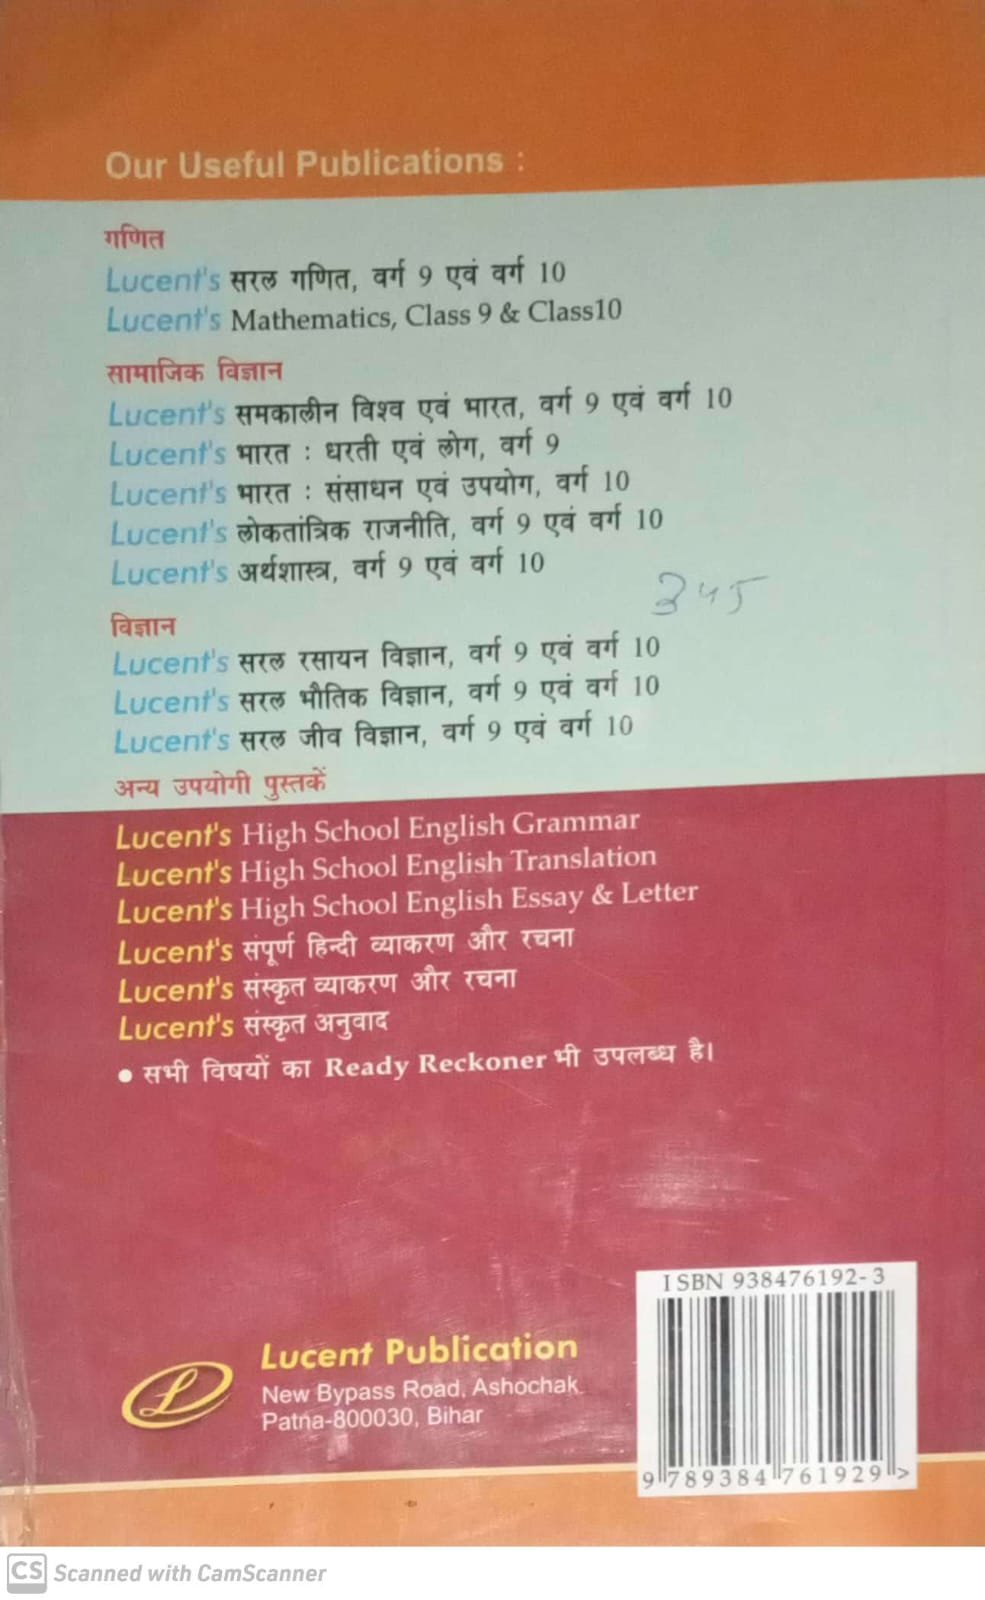 Our Useful Publications :
गणित
Lucent's सरल गणित, वर्ग 9 एवं वर्ग 10
Lucent's Mathematics, Class 9 & Class10
सामाजिक विज्ञान
Lucent's समकालीन विश्व एवं भारत, वर्ग 9 एवं वर्ग 10
Lucent's भारत : धरती एवं लोग, वर्ग 9
Lucent's भारत : संसाधन एवं उपयोग, वर्ग 10
Lucent's लोकतांत्रिक राजनीति, वर्ग 9 एवं वर्ग 10
Lucent's अर्थशास्त्र, वर्ग 9 एवं वर्ग 10
विज्ञान
Lucent's सरल रसायन विज्ञान, वर्ग 9 एवं वर्ग 10
Lucent's सरल भौतिक विज्ञान, वर्ग 9 एवं वर्ग 10
Lucent's सरल जीव विज्ञान, वर्ग 9 एवं वर्ग 10
अन्य उपयोगी पुस्तकें
Lucent's High School English Grammar
Lucent's High School English Translation
Lucent's High School English Essay & Letter
Lucent's संपूर्ण हिन्दी व्याकरण और रचना
Lucent's संस्कृत व्याकरण और रचना
Lucent's संस्कृत अनुवाद
• सभी विषयों का Ready Reckoner भी उपलब्ध है।
ISBN 938476192-3
Lucent Publication
New Bypass Road, Ashochak
Patna-800030, Bihar
9 789384 761929 >
CS Scanned with CamScanner